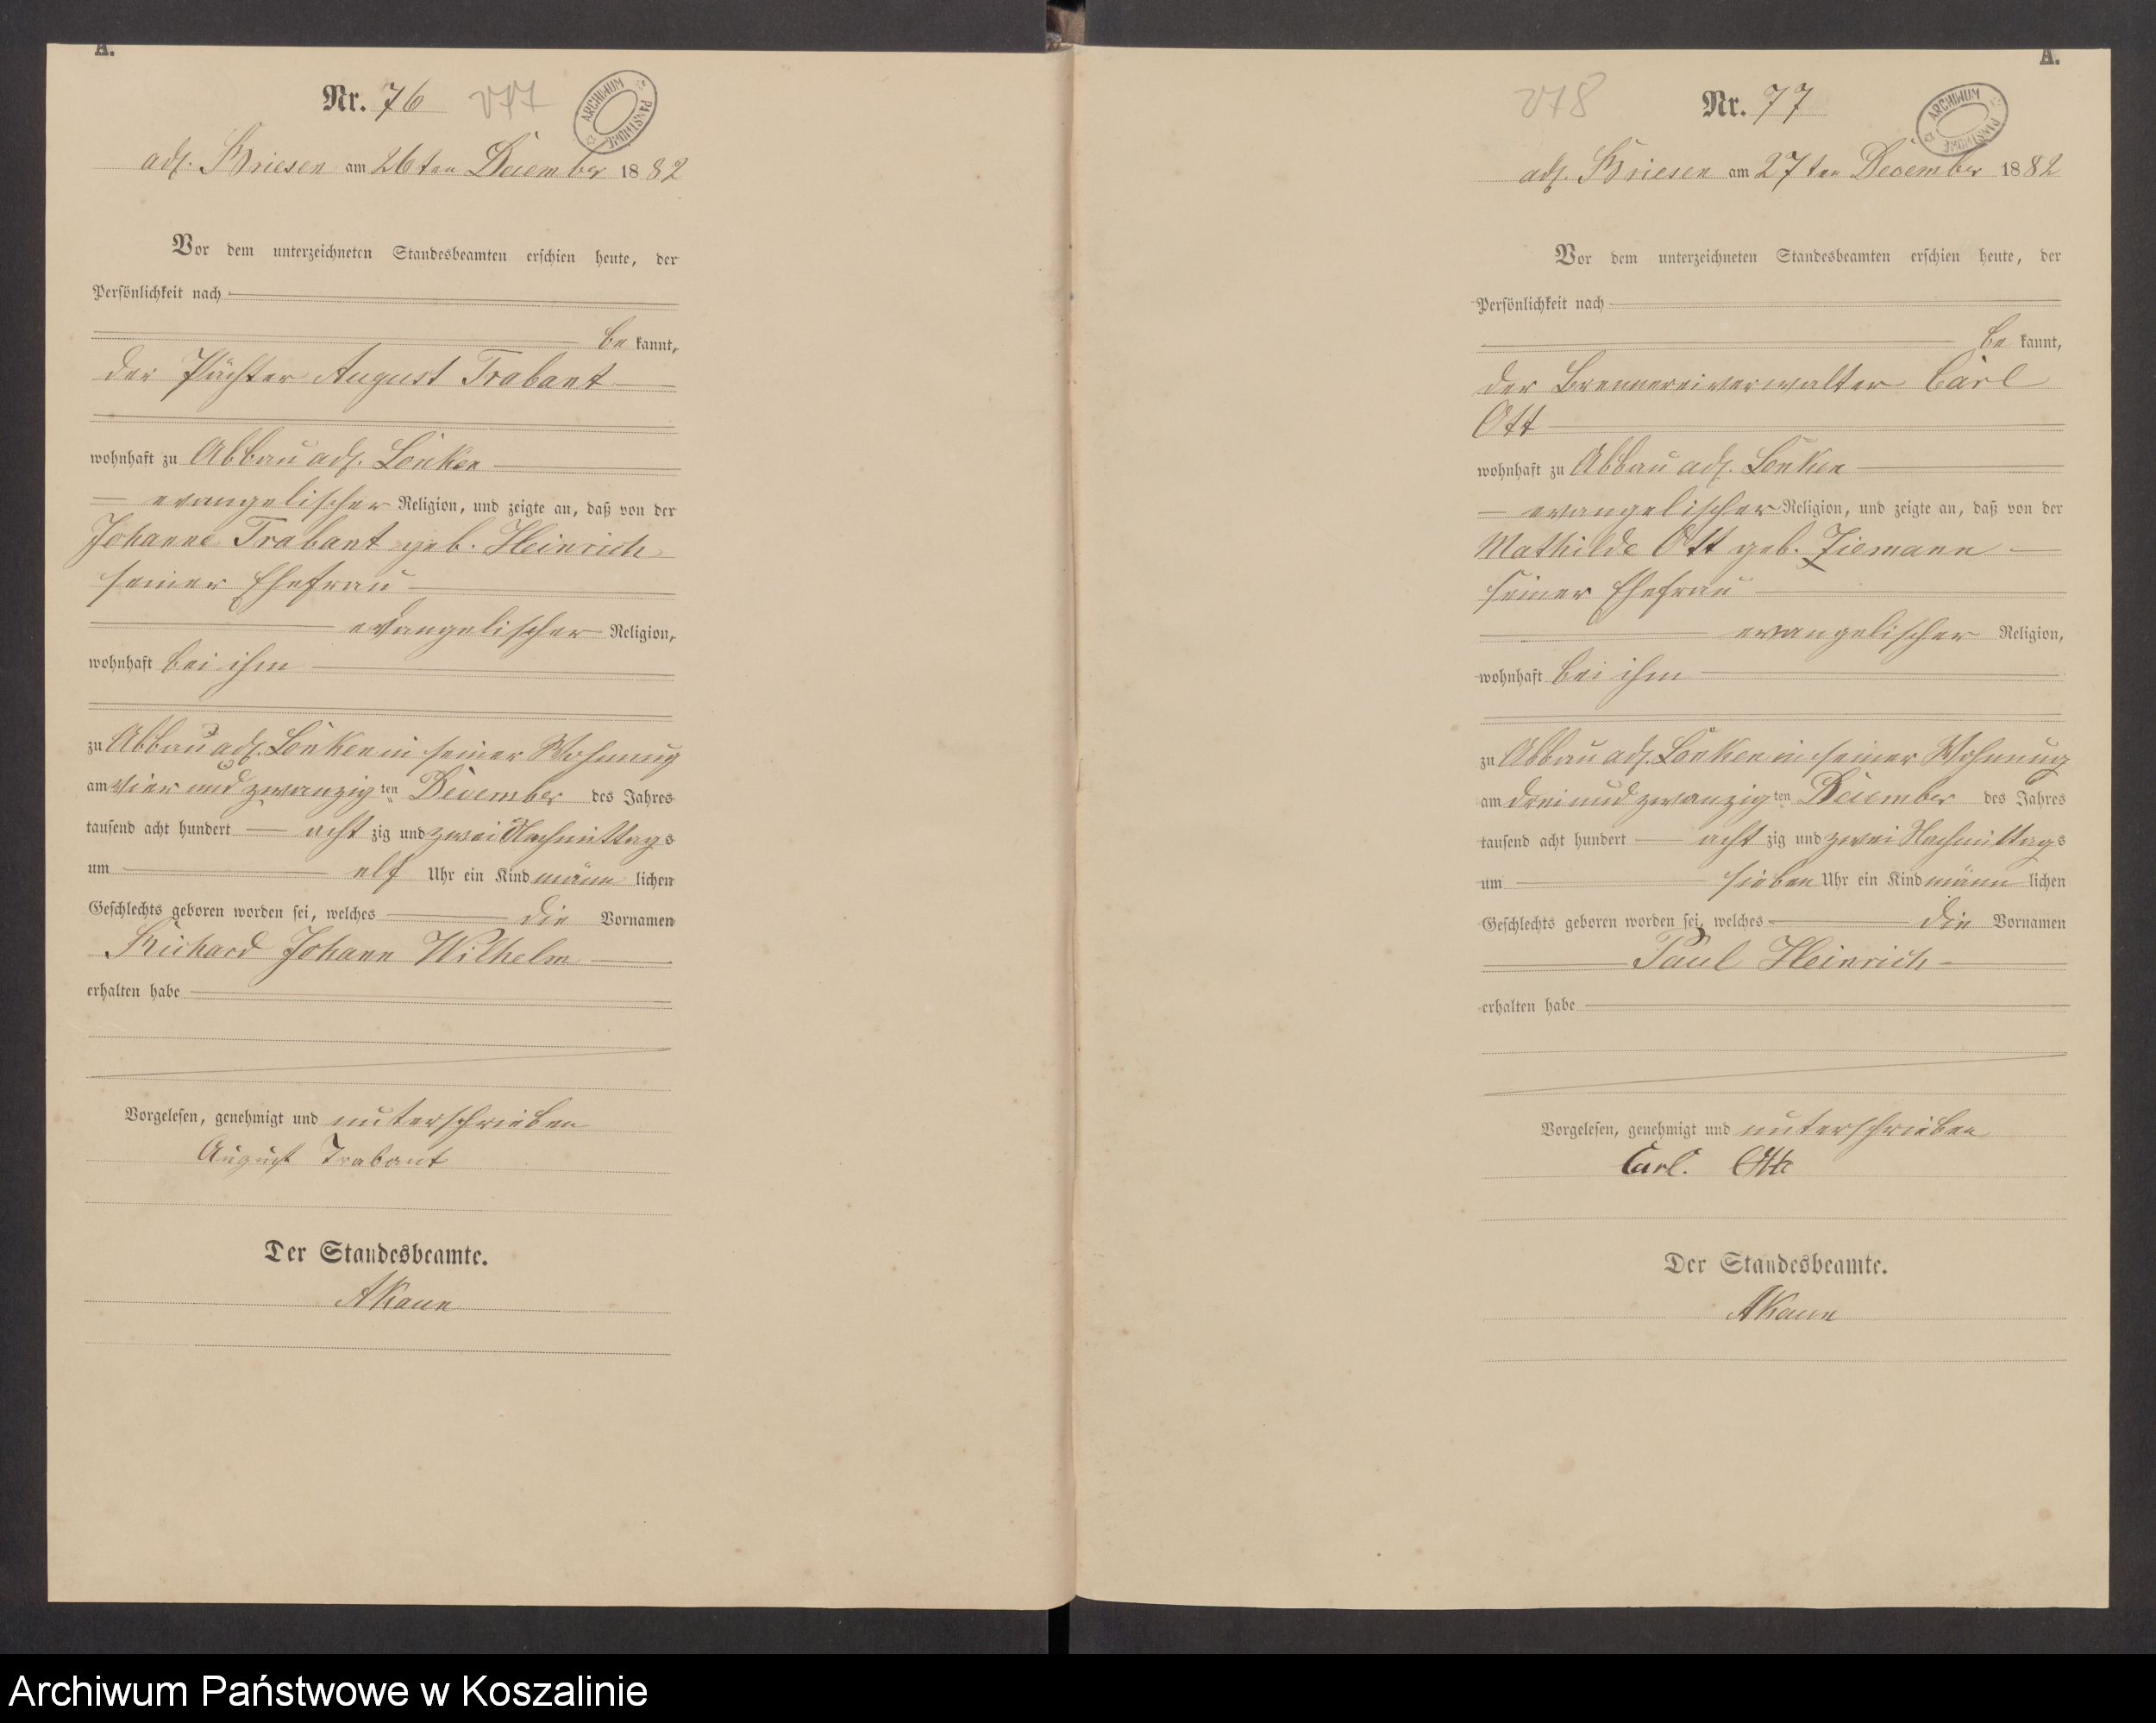 A.
Nr. 76
277
ARCHIWUM PAŃSTWOWE
adl. Briesen am 26ten December 1882
Vor dem unterzeichneten Standesbeamten erschien heute, der
Persönlichkeit nach
be kannt,
der Pächter August Trabant
wohnhaft zu Abbau adl. Lonken
evangelischer Religion, und zeigte an, daß von der
Johanne Trabant geb. Heinrich
seiner Ehefrau
evangelischer Religion,
wohnhaft bei ihm
zu Abbau adl. Lonken in seiner Wohnung
am vier und zwanzig ten December des Jahres
tausend acht hundert acht zig und zwei Nachmittags
um elf Uhr ein Kind männ lichen
Geschlechts geboren worden sei, welches die Vornamen
Richard Johann Wilhelm
erhalten habe
Vorgelesen, genehmigt und unterschrieben
August Trabant
Der Standesbeamte.
A.
278
Nr. 77
ARCHIWUM PAŃSTWOWE
adl. Briesen am 27ten December 1882
Vor dem unterzeichneten Standesbeamten erschien heute, der
Persönlichkeit nach
be kannt,
der Brennereiverwalter Carl
Ott
wohnhaft zu Abbau adl. Lonken
evangelischer Religion, und zeigte an, daß von der
Mathilde Ott geb. Ziemann
seiner Ehefrau
evangelischer Religion,
wohnhaft bei ihm
zu Abbau adl. Lonken in seiner Wohnung
am drei und zwanzig ten December des Jahres
tausend acht hundert acht zig und zwei Nachmittags
um sieben Uhr ein Kind männ lichen
Geschlechts geboren worden sei, welches die Vornamen
Paul Heinrich
erhalten habe
Vorgelesen, genehmigt und unterschrieben
Carl. Ott
Der Standesbeamte.
Archiwum Państwowe w Koszalinie